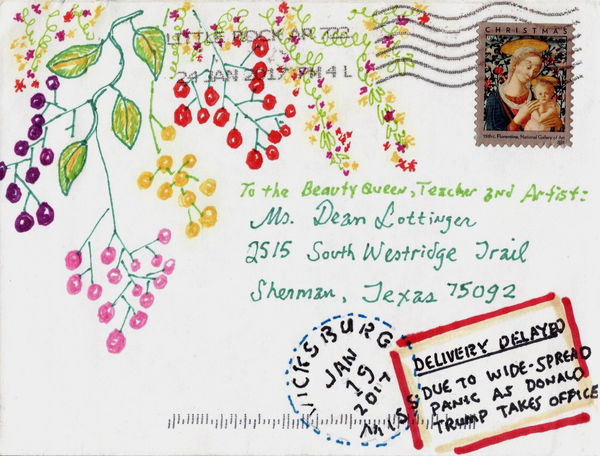 LITTLE ROCK AR 722
24 JAN 2017 PM 4 L
CHRISTMAS
National Gallery of Art
To the Beauty Queen, Teacher and Artist:
Ms. Dean Lottinger
2515 South Westridge Trail
Sherman, Texas 75092
VICKSBURG MISS
JAN
19
2017
DELIVERY DELAYED
DUE TO WIDE-SPREAD
PANIC AS DONALD
TRUMP TAKES OFFICE